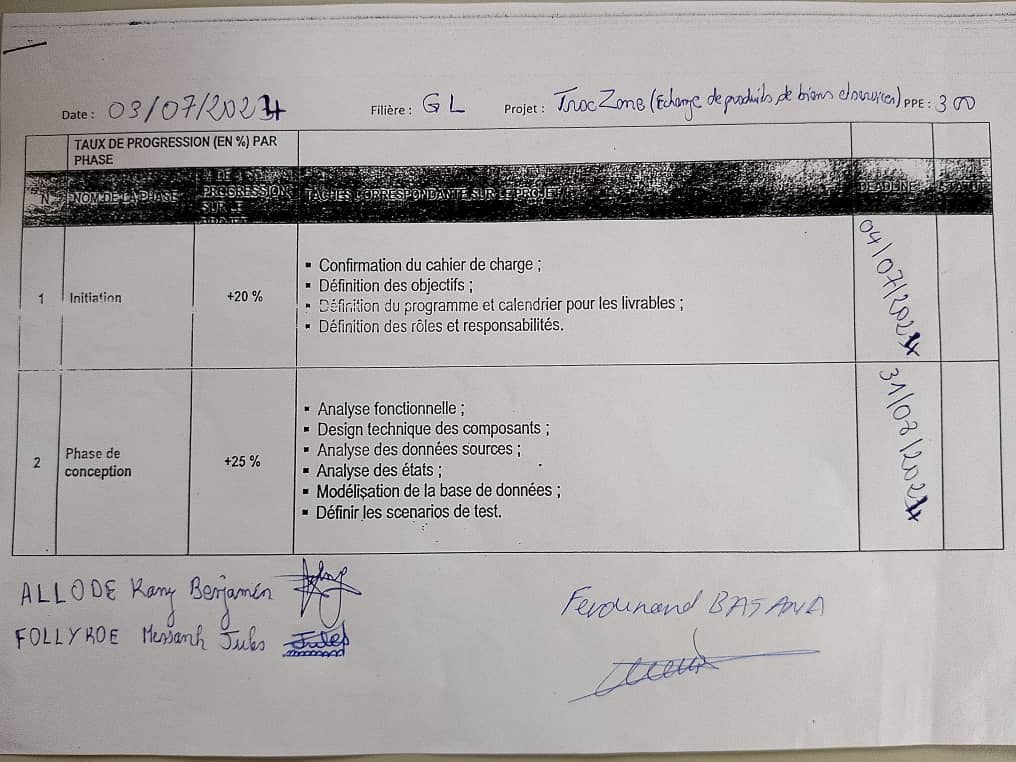 Date : 03/07/2024 Filière : GL Projet : TrocZone (Echange de produits, de biens et services) PPE : 300
TAUX DE PROGRESSION (EN %) PAR
PHASE
N NOM DE LA PHASE PROGRESSION SUR LE TACHES CORRESPONDANTE SUR LE PROJET DEADLINE STATUT
1 Initiation +20 %
▪ Confirmation du cahier de charge ;
▪ Définition des objectifs ;
▪ Définition du programme et calendrier pour les livrables ;
▪ Définition des rôles et responsabilités.
04/07/2024
2 Phase de
conception
+25 %
▪ Analyse fonctionnelle ;
▪ Design technique des composants ;
▪ Analyse des données sources ;
▪ Analyse des états ;
▪ Modélisation de la base de données ;
▪ Définir les scenarios de test.
31/08/2024
ALLODE Kany Benjamin
FOLLYKOE Messanh Jules Jules
Ferdinand BASANA